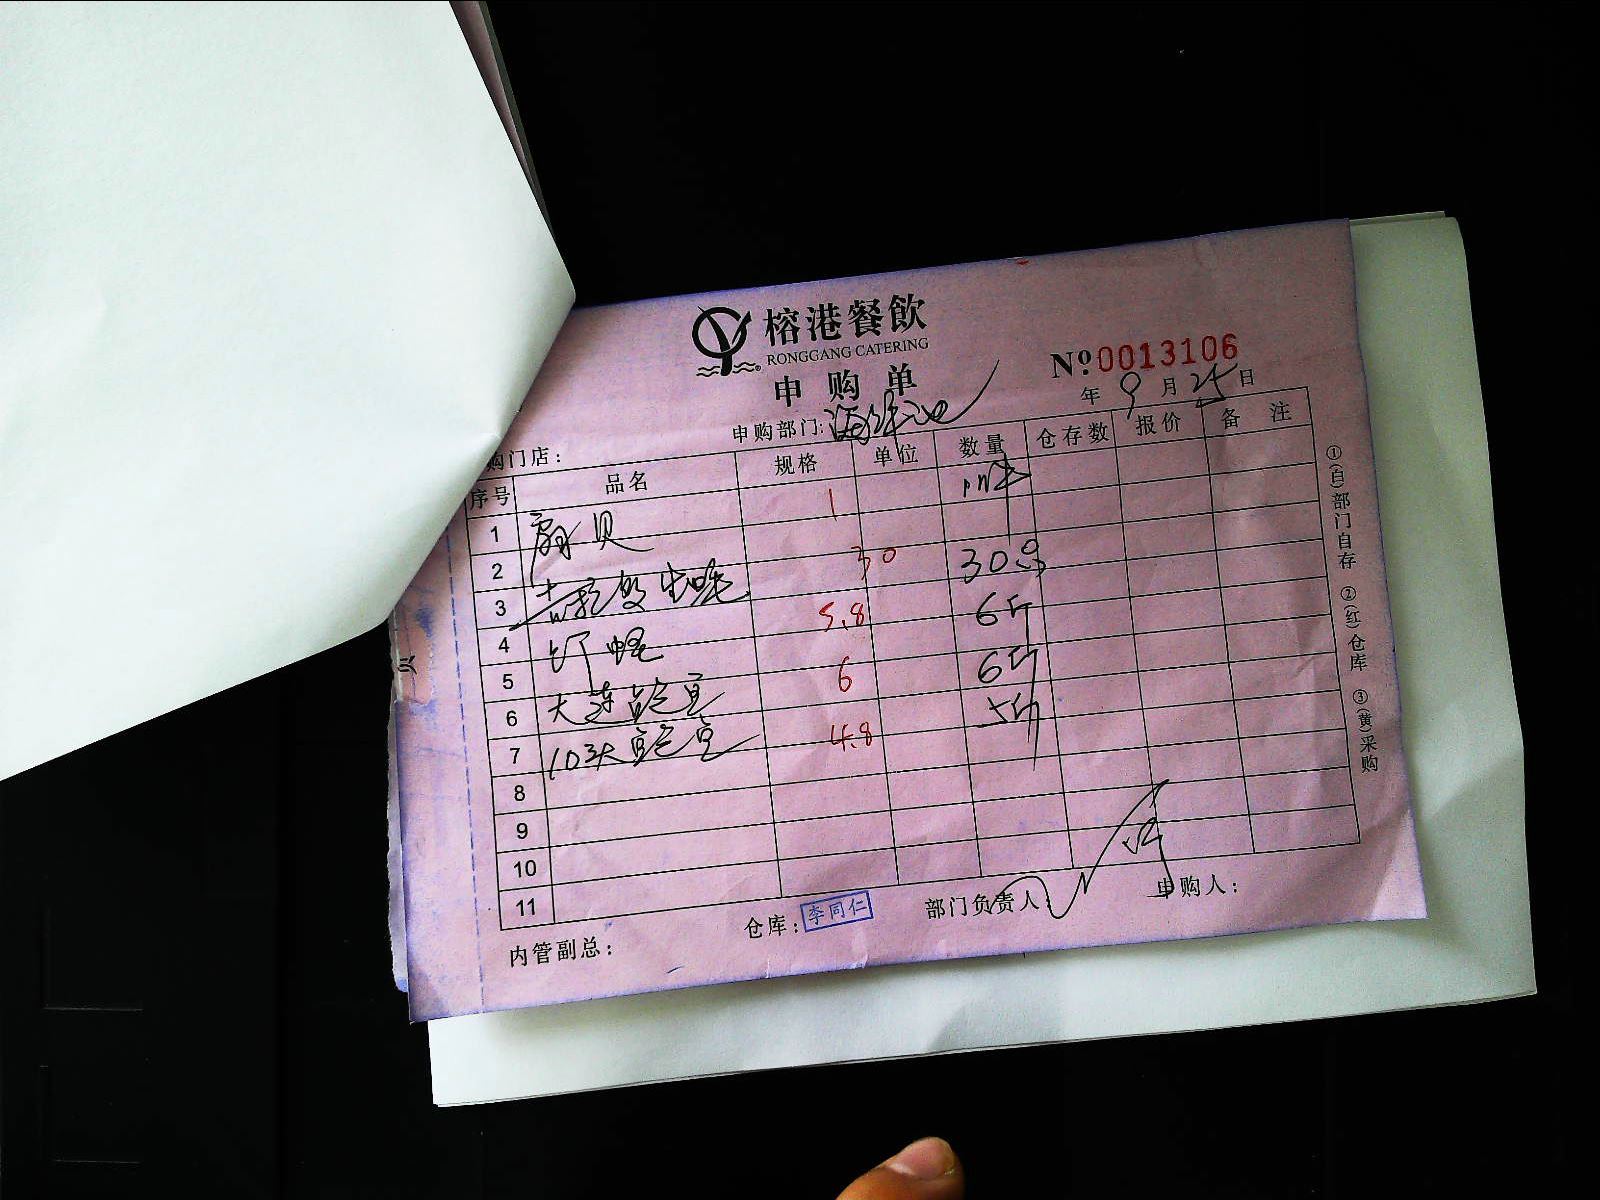 榕港餐飲
RONGGANG CATERING
申购单
№ 0013106
年 9 月 25 日
购门店：
申购部门：海鲜池
序号 品名 规格 单位 数量 仓存数 报价 备注
1 扇贝 1
2
3 生蚝 30 30只
4 5.8 6斤
5 6 6斤
6 大连鲍鱼 4.8 5斤
7 10头鲍鱼
8
9
10
11
内管副总：
仓库：李同仁
部门负责人：
申购人：
①(白)部门自存 ②(红)仓库 ③(黄)采购